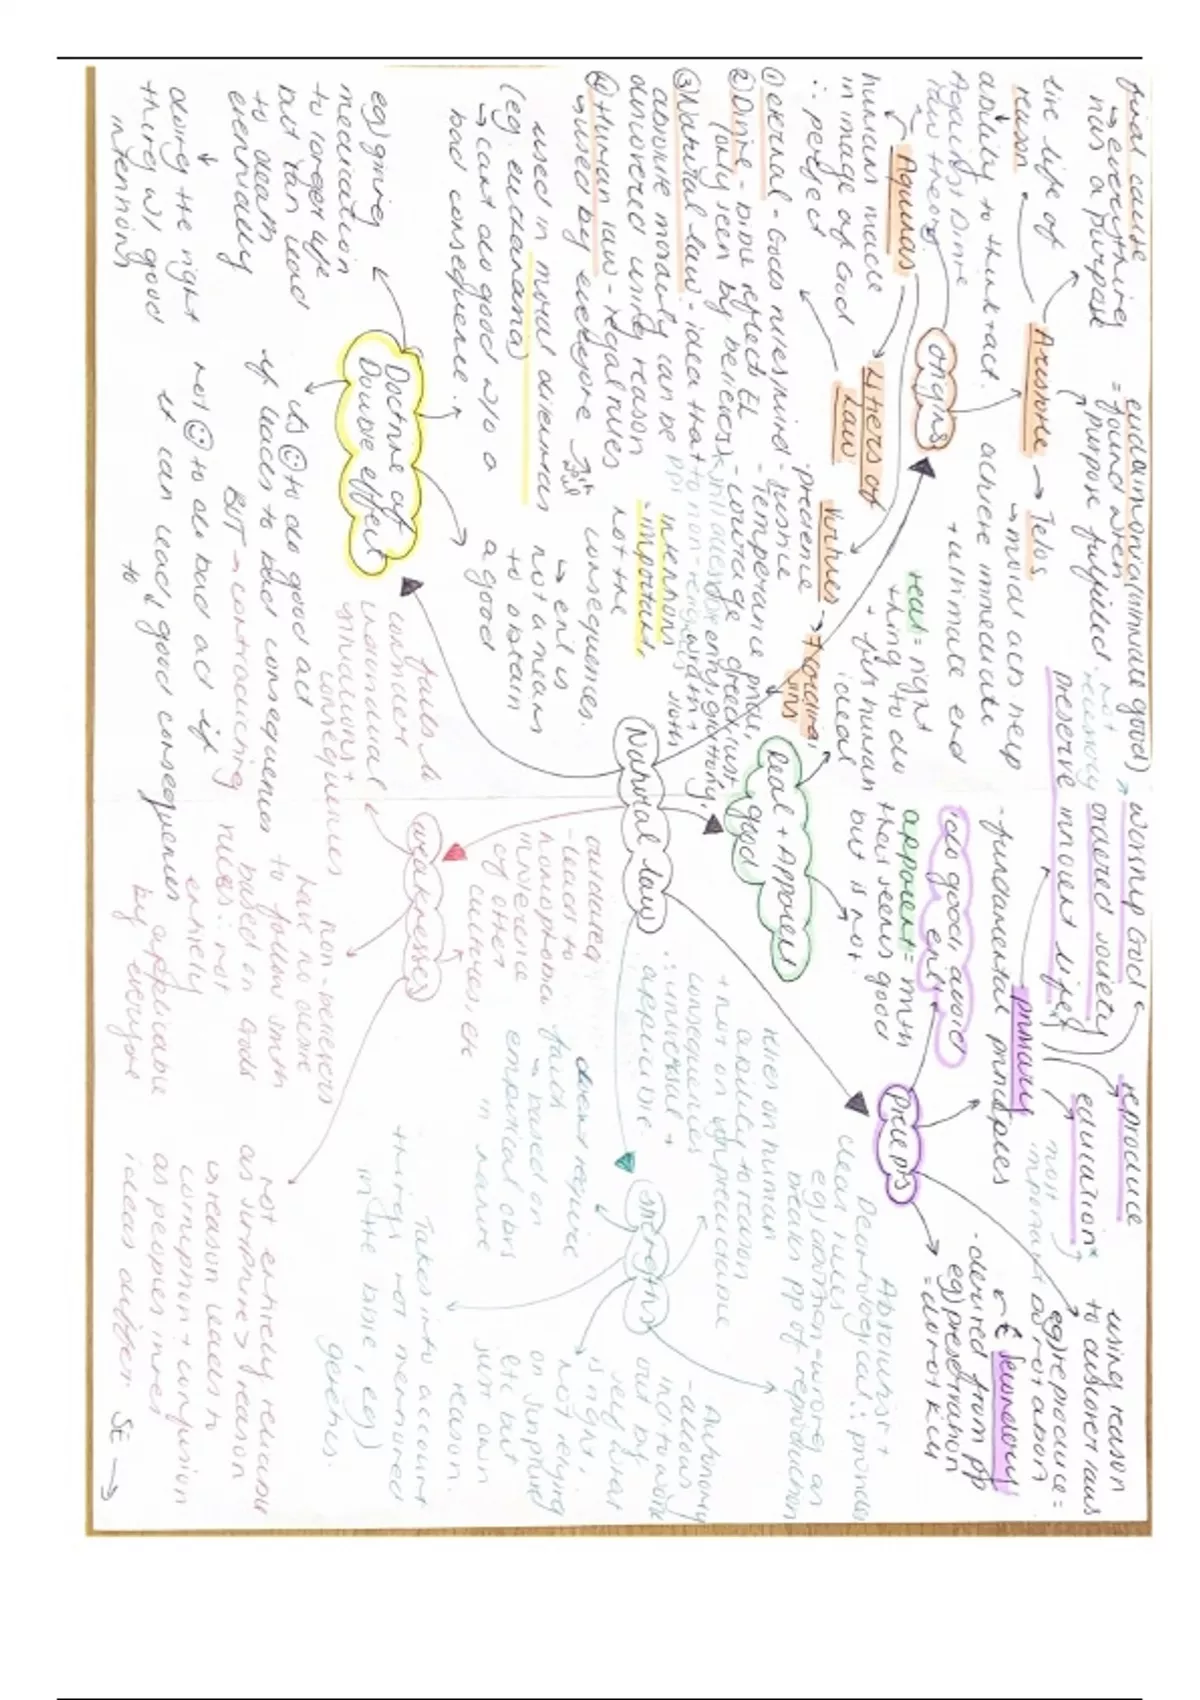 final cause
→ everything
has a purpose
the life of
reason
ability to think + act.
Aristotle → Telos
→ moral acts help
achieve immediate
+ ultimate end
= eudaimonia (ultimate good)
= found when
purpose fulfilled
Origins
Aquinas
humans made
in image of God
∴ perfect
4 tiers of
Law
① eternal - Gods rules/mind
② Divine - bible reflects EL
(only seen by believers)
③ Natural law - idea that
absolute morality can be
discovered using reason
④ Human law - legal rules
Virtues → 4 cardinal
- justice
- temperance
- courage
Natural law
Real + Apparent
good
real = right
thing to do
+ for human
ideal
apparent =
seems good
but is not.
Precepts
do good, avoid
evil
- fundamental principles
primary
worship God
ordered society
reproduce
education
preserve innocent life
Secondary
- derived from pp
eg) preservation
= do not kill
using reason
to discover laws
eg) reproduce =
do not abort
Doctrine of
Double effect
used in moral dilemmas
(eg. euthanasia)
→ cant do good w/o a
bad consequence.
intention
important,
not the
consequences.
→ evil is
not a means
to obtain
a good
eg) giving
medication
to longer life
but than lead
to death
eventually
doing the right
thing w/ good
intentions
is ☺ to do good act
if leads to bad consequences
BUT → contradicting rules:
not ☺ to do bad act if
it can lead to good consequences
weaknesses
fails to
consider
individual
situations +
consequences
non-believers
have no desire
to follow smth
based on Gods
rules ∴ not
entirely
applicable
by everyone
outdated
- leads to
homophobia
intolerance
of other
cultures, etc
not entirely religious
as scripture > reason
↳ reason leads to
corruption + confusion
as peoples inner
ideas differ
strengths
∴ universal +
applicable.
relies on human
ability to reason
+ not on unpredictable
consequences
Absolutist +
Deontological ∴ provides
clear rules
eg) abortion = wrong as
breaks pp of reproduction
Autonomy
- allows
ind. to work
out by
self what
is right,
not relying
on scripture
etc but
just own
reason.
doesnt require
faith
→ based on
empirical obvs
in nature
Takes into account
things not mentioned
in the bible, eg)
genetics.
SE →